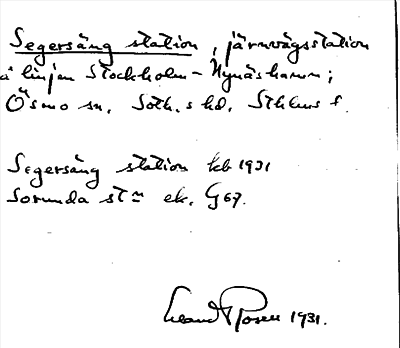 Segersäng station, järnvägsstation
å linjen Stockholm - Nynäshamn;
Ösmo sn, Soth.s hd, Sthlms l.
Segersäng station kb 1931
Sorunda stn ek. G 67.
Rosen 1931.